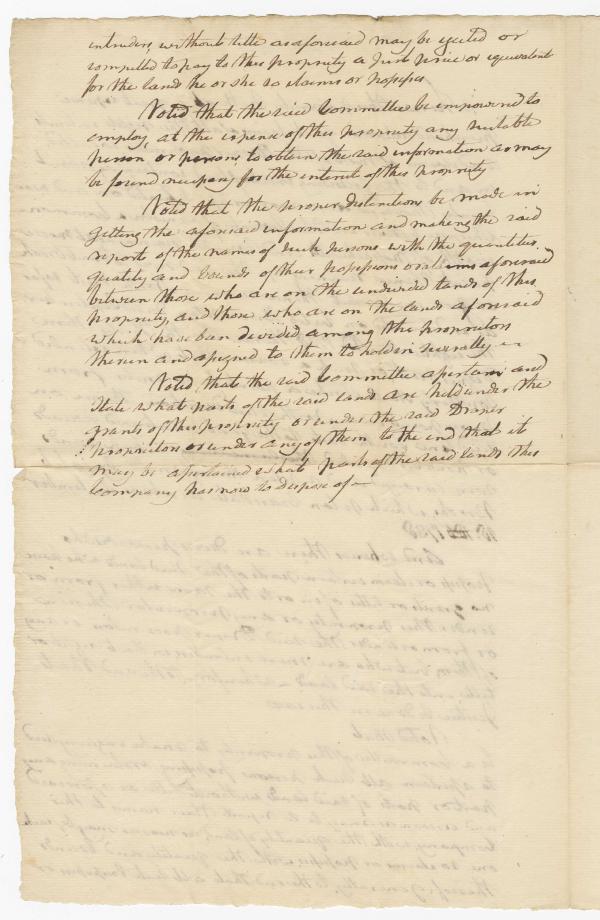 intruders without title as aforesaid may be ejected or
compelled to pay to this propriety a Just price or equivalent
for the land he or she so claims or possesses
Voted that the said Committee be impowered to
employ, at the expense of this propriety any suitable
person, or persons, to obtain the said information as may
be found necessary for the interest of this propriety
Voted that the proper distinctions be made in
getting the aforesaid information and making the said
reports of the names of such persons with the quantities
quality and bounds of their possessions or claims aforesaid
between those who are on the undivided lands of this
propriety, and those who are on the lands aforesaid
which have been divided among the proprietors
therein and assigned to them to hold in severalty
Voted that the said Committee assertain and
State what parts of the said lands are held under the
grants of this propriety or under the said Draper
proprietors or under any of them to the end that it
may be assertained what parts of the said lands this
Company has now to dispose of —